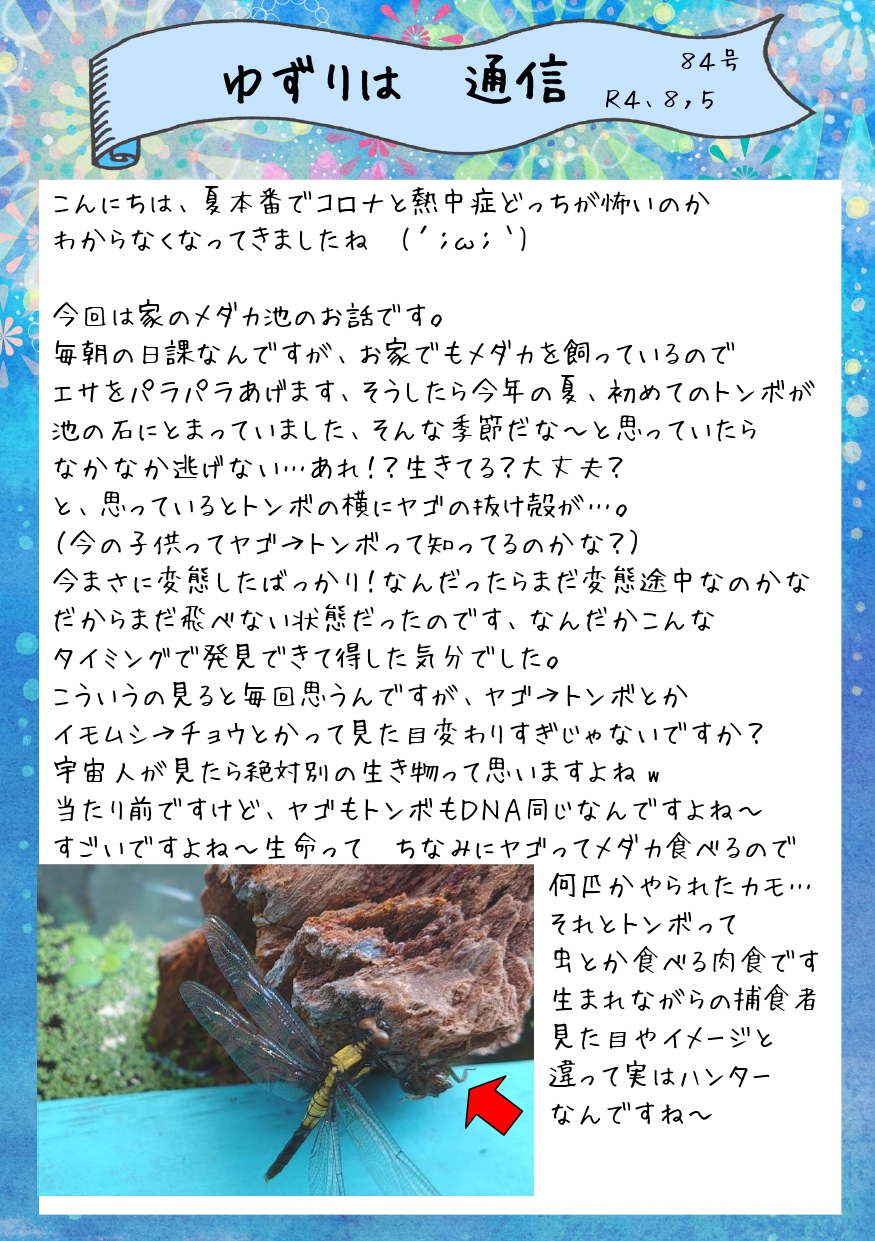 ゆずりは　通信
84号
R4、8,5
こんにちは、夏本番でコロナと熱中症どっちが怖いのか
わからなくなってきましたね　(´；ω；`)
今回は家のメダカ池のお話です。
毎朝の日課なんですが、お家でもメダカを飼っているので
エサをパラパラあげます、そうしたら今年の夏、初めてのトンボが
池の石にとまっていました、そんな季節だな～と思っていたら
なかなか逃げない…あれ！？生きてる？大丈夫？
と、思っているとトンボの横にヤゴの抜け殻が…。
(今の子供ってヤゴ→トンボって知ってるのかな？)
今まさに変態したばっかり！なんだったらまだ変態途中なのかな
だからまだ飛べない状態だったのです、なんだかこんな
タイミングで発見できて得した気分でした。
こういうの見ると毎回思うんですが、ヤゴ→トンボとか
イモムシ→チョウとかって見た目変わりすぎじゃないですか？
宇宙人が見たら絶対別の生き物って思いますよねw
当たり前ですけど、ヤゴもトンボもDNA同じなんですよね～
すごいですよね～生命って　ちなみにヤゴってメダカ食べるので
何匹かやられたカモ…
それとトンボって
虫とか食べる肉食です
生まれながらの捕食者
見た目やイメージと
違って実はハンター
なんですね～